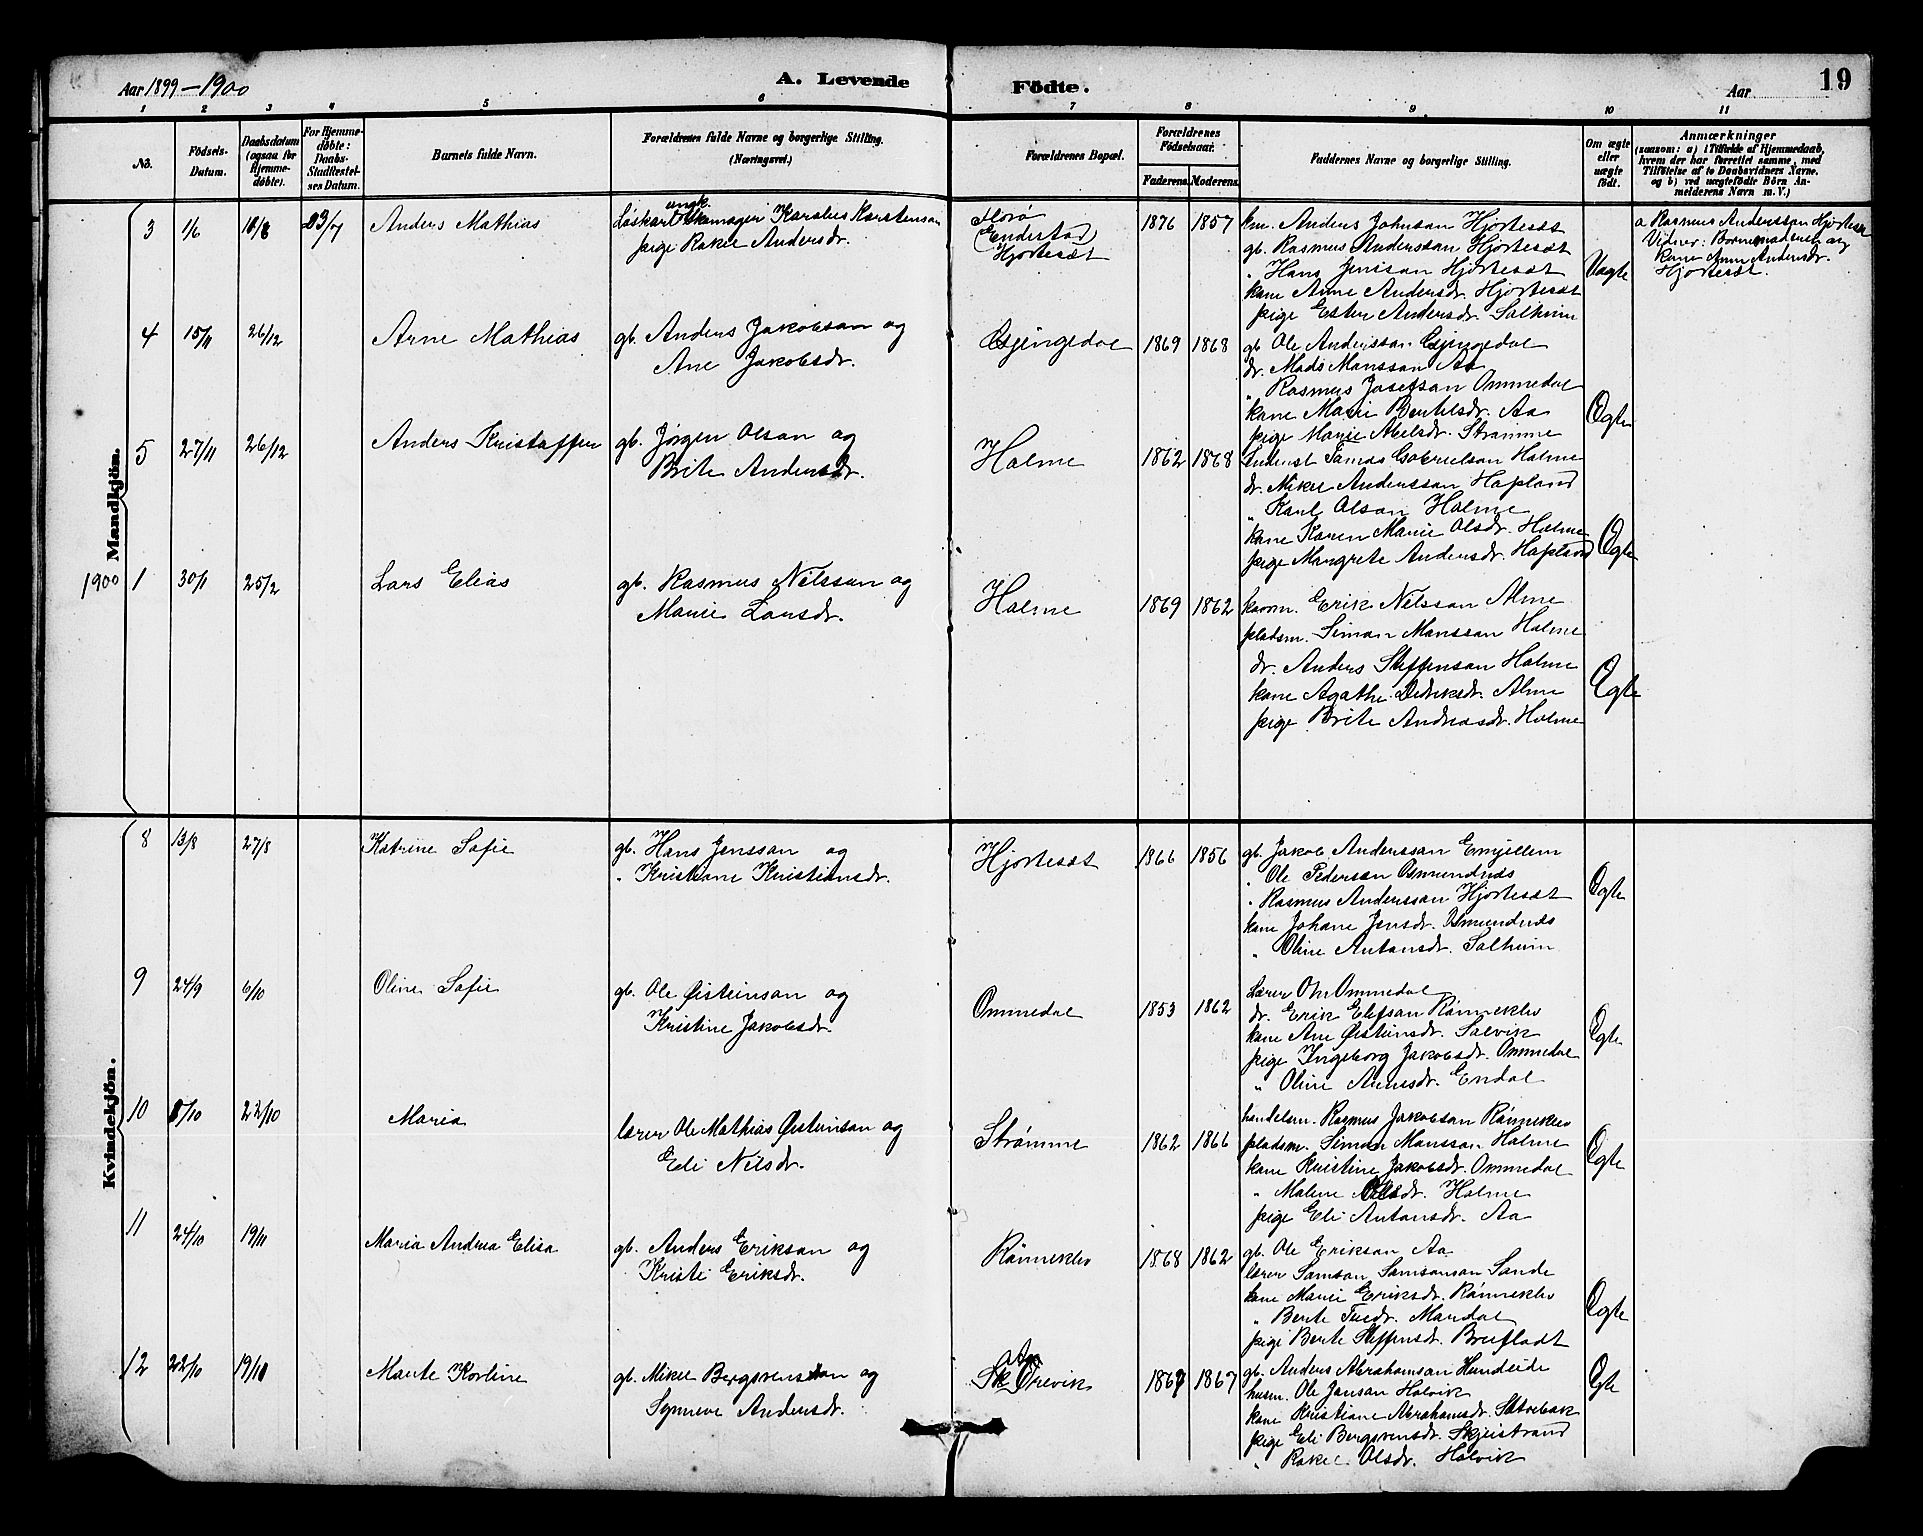 Aar 1899-1900
A. Levende
Födte.
Aar
19
1 2 3 4 5 6 7 8 9 10 11
No.
Födsels-Datum.
Daabsdatum (ogsaa for Hjemmedøbte).
For Hjemmedøbte: Daabs-Stadfestelses Datum.
Barnets fulde Navn.
Forældrenes fulde Navne og borgerlige Stilling. (Næringsvei.)
Forældrenes Bopæl.
Forældrenes Födselsaar.
Faderens. Moderens.
Faddernes Navne og borgerlige Stilling.
Om ægte eller uægte födt.
Anmærkninger
(saasom: a) i Tilfælde af Hjemmedaab, hvem der har forrettet samme, med Tilföielse af to Daabsvidners Navne, og b) ved uægtefödte Börn Anmelderens Navn m. V.)
Mandkjön.
3 1/6 23/7 Anders Mathias
ungk.
Karolus Karstensen
pige Rakel Andersdr.
Florø
(Endestad)
Hjortesæt
1876 1857
km. Anders Johnsan Hjortesæt
gb. Rasmus Anderssan Hjortesæt
" Hans Jenssan Hjortesæt
kone Anne Andersdr. Hjortesæt
pige Ester Andersdr. Solheim
Uægte
a Rasmus Anderssan Hjortesæt
Vidner: Barnemoderen og
kone Anne Andersdr.
Hjortesæt.
4 15/11 26/12 Arne Mathias
gb. Anders Jakobsan og
Ane Jakobsdr.
Gjengedal
1869 1868
gb. Ole Anderssan Gjengedal
dr. Mads Monssan Aa
" Rasmus Josefsan Ommedal
kone Marie Bertelsdr. Aa
pige Marie Abelsdr. Strømme
Ægte
5 27/11 26/12 Anders Kristoffer
gb. Jørgen Olsan og
Brite Andersdr.
Holme
1862 1868
Tomas Gabrielsan Holme
dr. Mikel Anderssan Hopland
" Karl Olsan Holme
kone Karen Marie Olsdr. Holme
pige Margrete Andersdr. Hopland
Ægte
1900 1 30/1 25/2 Lars Elias
gb. Rasmus Nilssan og
Marie Larsdr.
Holme
1869 1862
Erik Nilssan Alme
pladsm. Simon Monssan Holme
dr. Anders Steffensan Holme
kone Agathe Didriksdr. Alme
pige Brite Andreasdr. Holme
Ægte
Kvindekjön.
8 13/8 27/8 Katrine Sofie
gb. Hans Jenssan og
" Kristiane Kristiansdr.
Hjortesæt
1866 1856
gb. Jakob Anderssan Emhjellem
" Ole Pedersan Osmundnæs
" Rasmus Anderssan Hjortesæt
kone Johane Jensdr. Osmundnæs
" Oline Antonsdr. Solheim
Ægte
9 24/9 6/10 Oline Sofie
gb. Ole Øisteinsan og
Kristine Jakobsdr.
Ommedal
1853 1862
Lærer Ommedal
dr. Erik Elefsan Rønneklev
kone Ane Øisteinsdr. Solvik
pige Ingeborg Jakobsdr. Ommedal
" Oline Endal
Ægte
10 22/10 Maria
lærer Ole Mathias Øisteinsan og
Eli Nilsdr.
Strømme
1862 1866
handelsm. Rasmus Jakobsan Rønneklev
pladsm. Simon Monssan Holme
kone Kristine Jakobsdr. Ommedal
" Malene Holme
pige Eli Antonsdr. Aa
Ægte
11 24/10 19/11 Maria Andrea Elisa
gb. Anders Eriksan og
Kristi Eriksdr.
Rønneklev
1868 1862
gb. Ole Eriksan Aa
lærer Samson Samsonsan Sande
kone Marie Eriksdr. Rønneklev
" Berte Mardal
pige Berte Steffensdr. Breiflodt
Ægte
12 22/10 19/11 Marte Korline
gb. Mikel Bergsvensan og
Synneve Andersdr.
Orevik
1867
gb. Anders Abrahamsan Hundeide
husm. Ole Jonsan Holvik
kone Kristiane Abrahamsdr.
pige Eli Bergsvensdr. Skjeistrand
" Rakel Olsdr. Holvik
Ægte